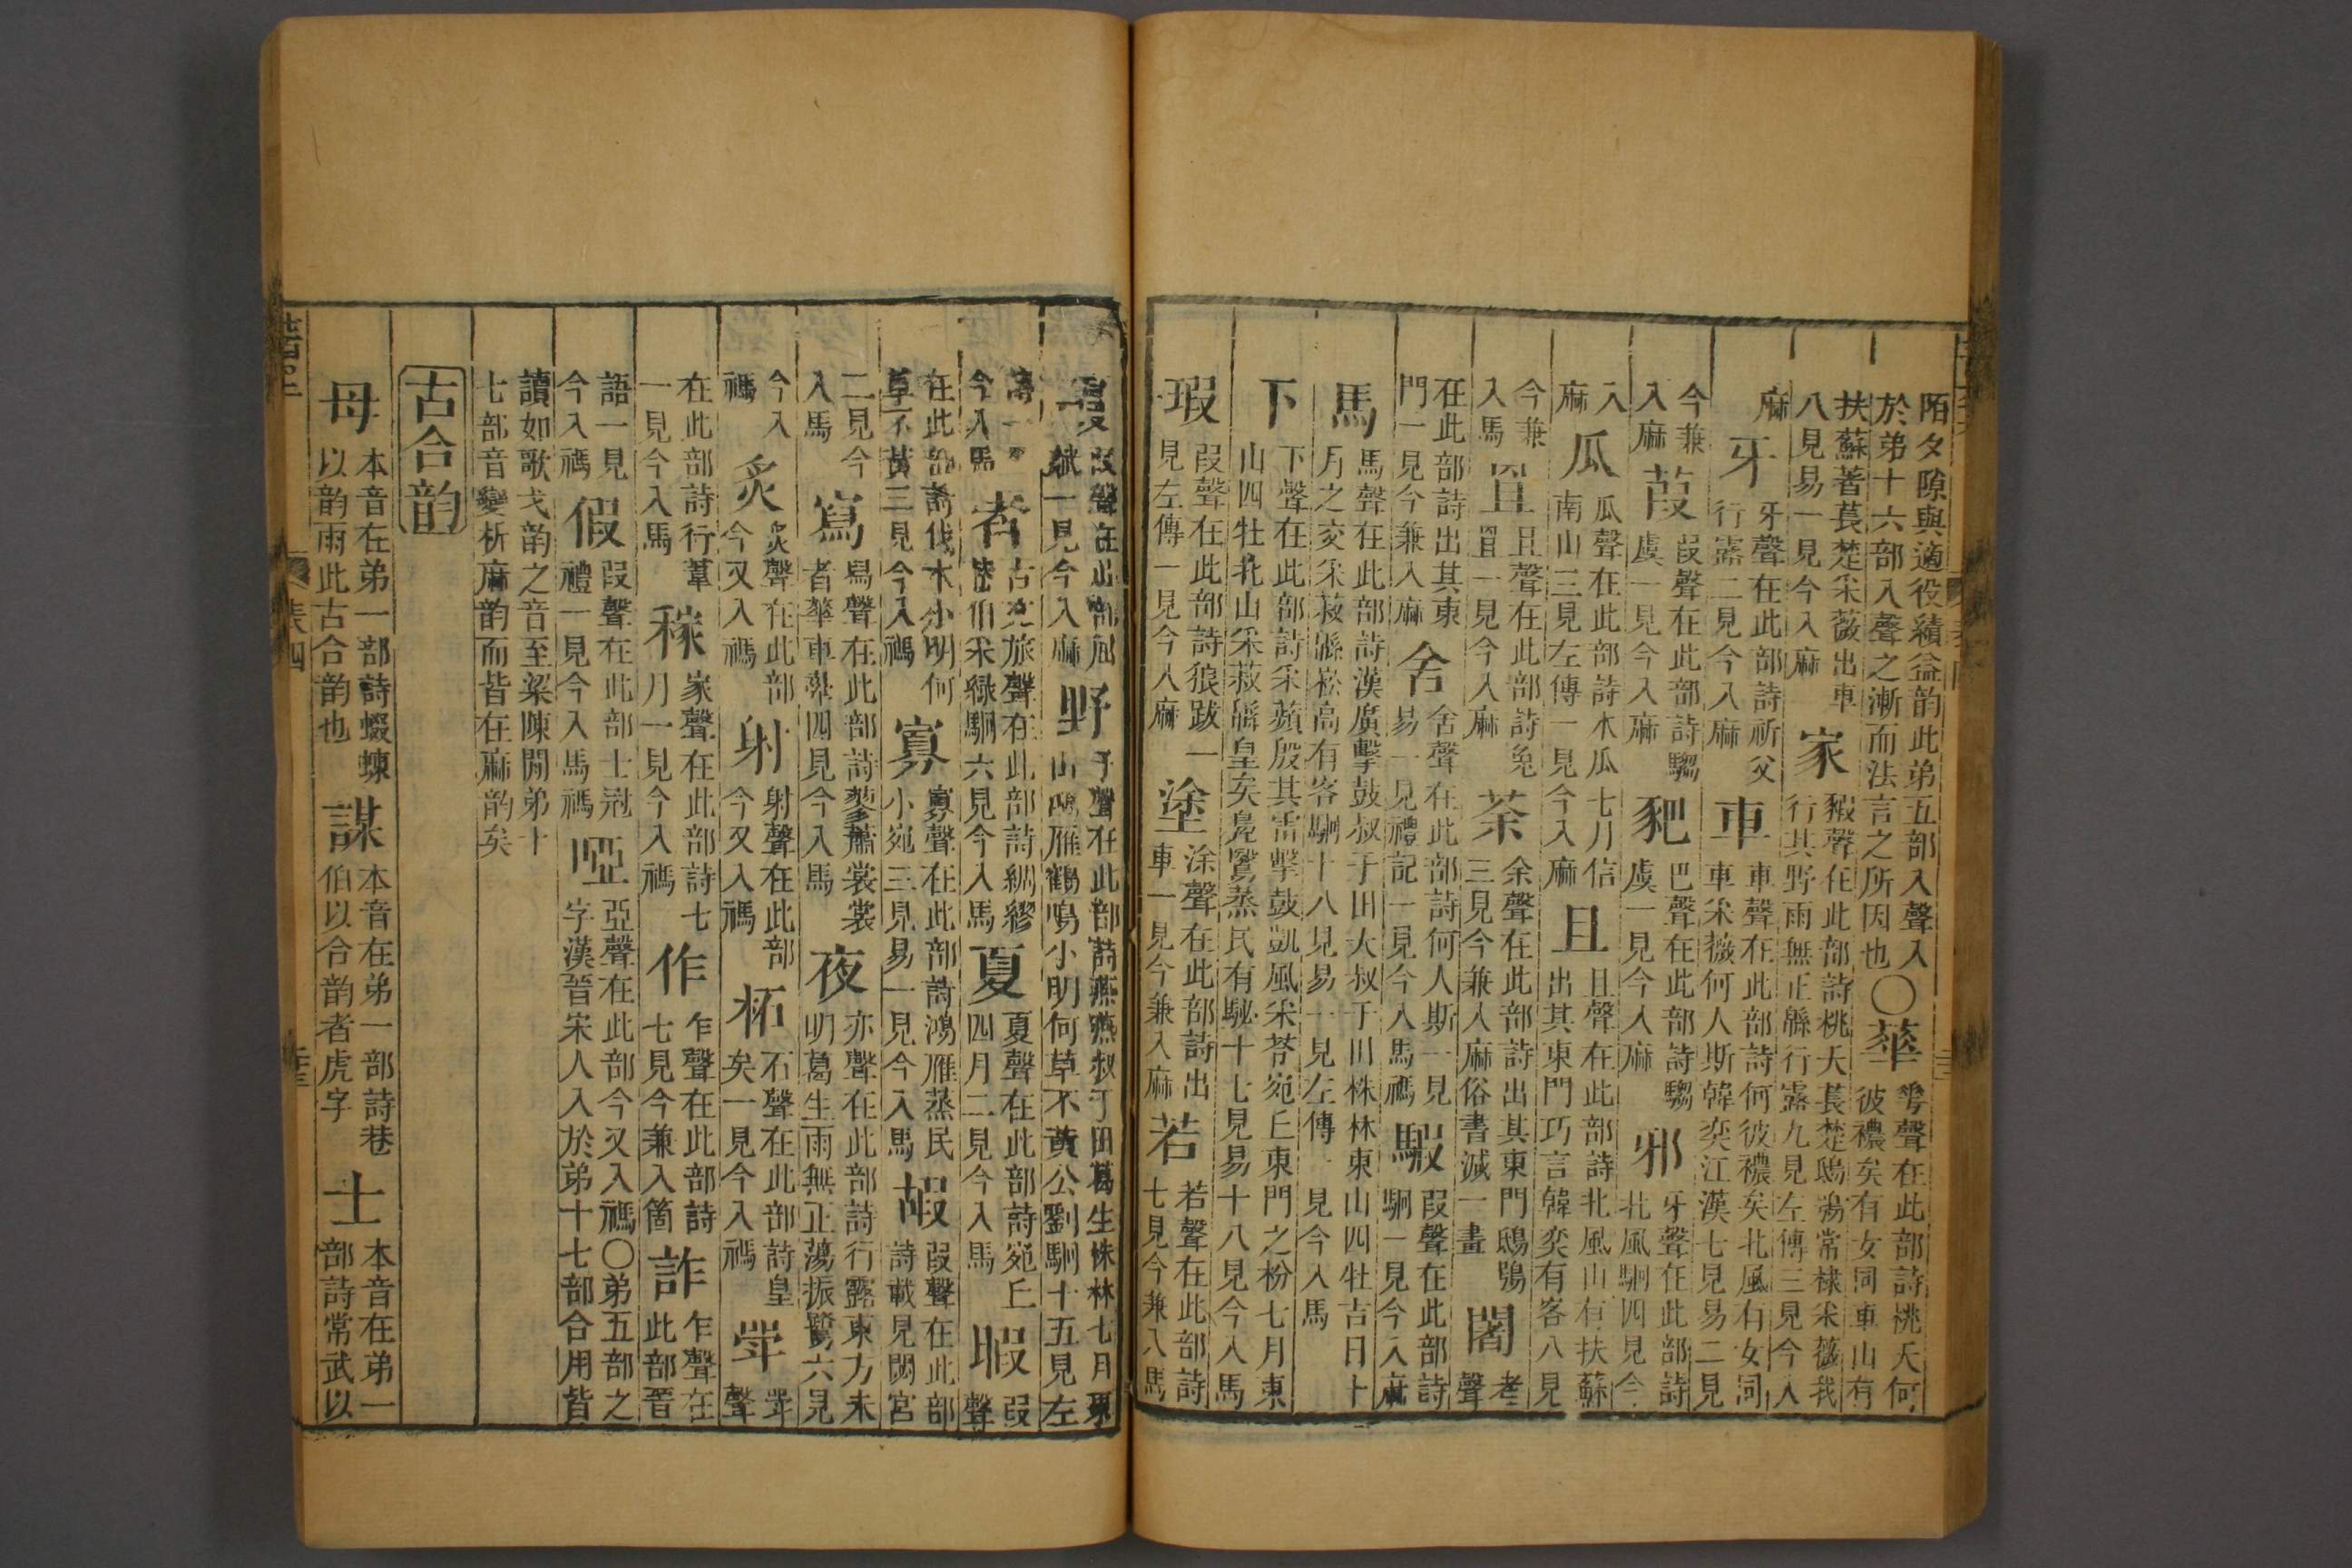 陌夕隙與適役績益韵此弟五部入聲入於弟十六部入聲之漸而法言之所因也〇華雩聲在此部詩桃夭何彼襛矣有女同車山有
扶蘇著萇楚采薇出車八見易一見今入麻家豭聲在此部詩桃夭萇楚鴟鴞常棣采薇我行其野雨無正緜行露九見左傳三見今入
麻牙牙聲在此部詩祈父行露二見今入麻車車聲在此部詩何彼襛矣北風有女同車采薇何人斯韓奕江漢七見易二見
今兼入麻葭叚聲在此部詩騶虞一見今入麻豝巴聲在此部詩騶虞一見今入麻邪牙聲在此部詩北風駉四見今
入麻瓜瓜聲在此部詩木瓜七月信南山三見左傳一見今入麻且且聲在此部詩北風山有扶蘇出其東門巧言韓奕有客八見
今兼入馬罝且聲在此部詩兔罝一見今入麻荼余聲在此部詩出其東門鴟鴞三見今兼入麻俗書減一畫闍者聲
在此部詩出其東門一見今兼入麻舍舍聲在此部詩何人斯一見易一見禮記一見今入馬禡騢叚聲在此部詩駉一見今入麻
馬馬聲在此部詩漢廣擊鼓叔于田大叔于田株林東山四牡吉日十月之交采菽緜崧高有客駉十八見易一見左傳一見今入馬
下下聲在此部詩采蘋殷其雷擊鼓凱風采苓宛丘東門之枌七月東山四牡北山采菽緜皇矣鳧鷖蒸民有駜十七見易十八見今入馬
瑕叚聲在此部詩狼跋一見左傳一見今入麻塗涂聲在此部詩出車一見今兼入麻若若聲在此部詩七見今兼入馬
聲在此部一見今入麻野予聲在此部詩燕燕叔于田葛生株林七月東山鴻雁鶴鳴小明何草不黃公劉駉十五見左
今入馬者古文旅聲在此部詩綢繆巷伯采綠駉六見今入馬夏夏聲在此部詩宛丘四月二見今入馬暇叚聲
在此部詩伐木小明何草不黃三見今入禡寡寡聲在此部詩鴻雁蒸民小宛三見易一見今入馬嘏叚聲在此部詩載見閟宮
二見今入馬寫舄聲在此部詩蓼蕭裳裳者華車舝四見今入馬夜亦聲在此部詩行露東方未明葛生雨無正蕩振鷺六見
今入禡炙炙聲在此部今又入禡射射聲在此部今又入禡柘石聲在此部詩皇矣一見今入禡斝斝聲
在此部詩行葦一見今入馬稼家聲在此部詩七月一見今入禡作乍聲在此部詩七見今兼入箇詐乍聲在此部晉
語一見今入禡假叚聲在此部士冠禮一見今入馬禡啞亞聲在此部今又入禡〇弟五部之字漢晉宋人入於弟十七部合用皆
讀如歌戈韵之音至梁陳閒弟十七部音變析麻韵而皆在麻韵矣
古合韵
母本音在弟一部詩蝃蝀以韵雨此古合韵也謀本音在弟一部詩巷伯以合韵者虎字士本音在弟一部詩常武以
表四